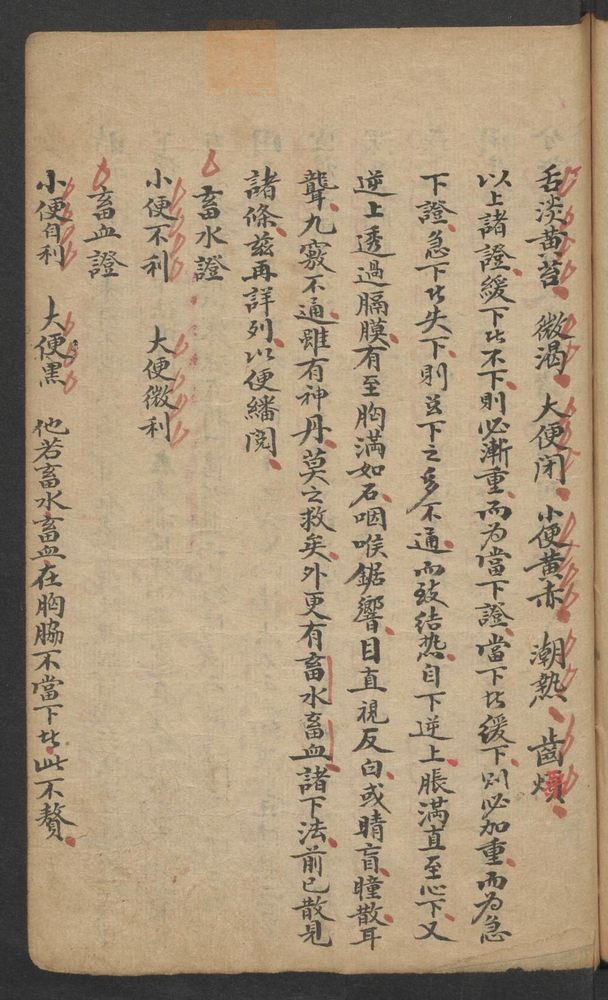 舌淡黃苔、微渴、大便閉、小便黃赤、潮熱、齒燥、
以上諸證緩下者不下、則必漸重、而為當下證、當下者緩下、則必加重、而為急
下證、急下者失下、則下之多不通、而致結熱自下逆上、脹滿直至心下又
逆上透過膈膜、有至胸滿如石、咽喉鋸響、目直視反白、或睛盲瞳散、耳
聾、九竅不通、雖有神丹、莫之救矣、外更有畜水畜血諸下法、前已散見
諸條、茲再詳列、以便繙閱、
畜水證
小便不利 大便微利
畜血證
小便自利 大便黑 他若畜水畜血在胸脇不當下者、此不贅、